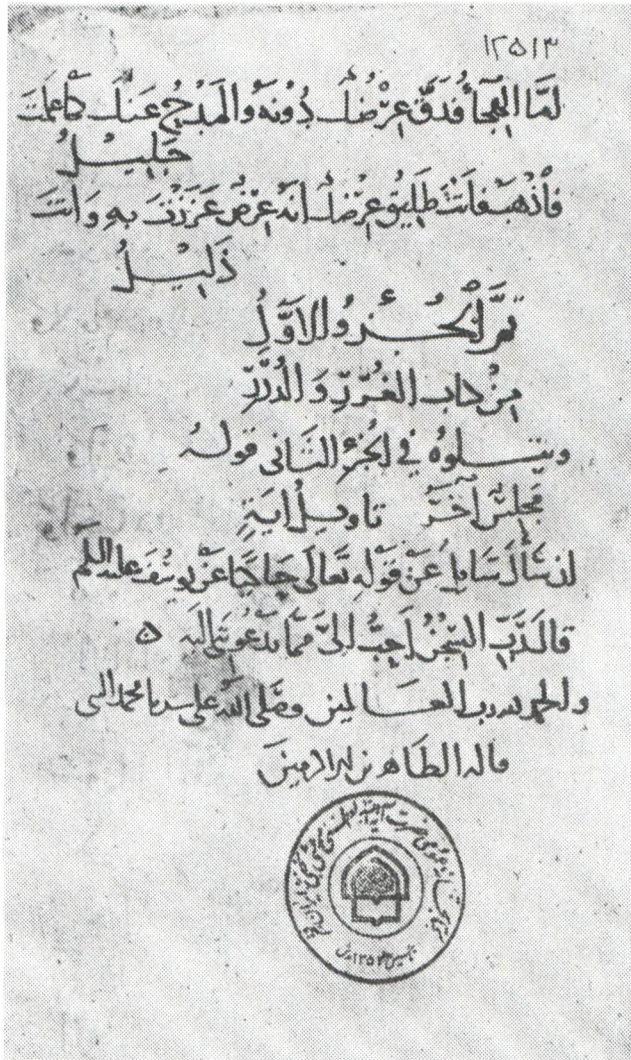 ١٢٥١٣
لمّا الهِجَاءُ فَدَقَّ عِرْضُكَ دُونَهُ وَالمَدْحُ عَنكَ كَمَا عَلمتَ
جَلِيْلُ
فَاذْهَبْ فَانتَ طَلِيقُ عِرْضِكَ انهُ عِرْضٌ عَزَزْتَ بِهِ وَانتَ
ذَلِيْلُ
تمَّ الجُـزءُ الاَوَّلُ
مِنْ كتاب الغُرَرِ وَالدُّرَرِ
ويتـلوهُ في الجُزءِ الثَّانى قولهُ
مَجلِسٌ آخَرُ تاويلُ ايَةٍ
ان سَألَ سَايلٌ عَنْ قَوْلهِ تَعَالَى حَاكِيًا عَنْ يُوسُفَ عليه السّلم
قالَ رَبِّ السِّجْنُ اَحَبُّ الىَّ ممّا يَدْعُونَنِى اليهِ ٥
والحمد لله رب العـالمين وصَلَّى اللهُ على سيدنا محمد النبى
واله الطاهرين الاكرمينَ